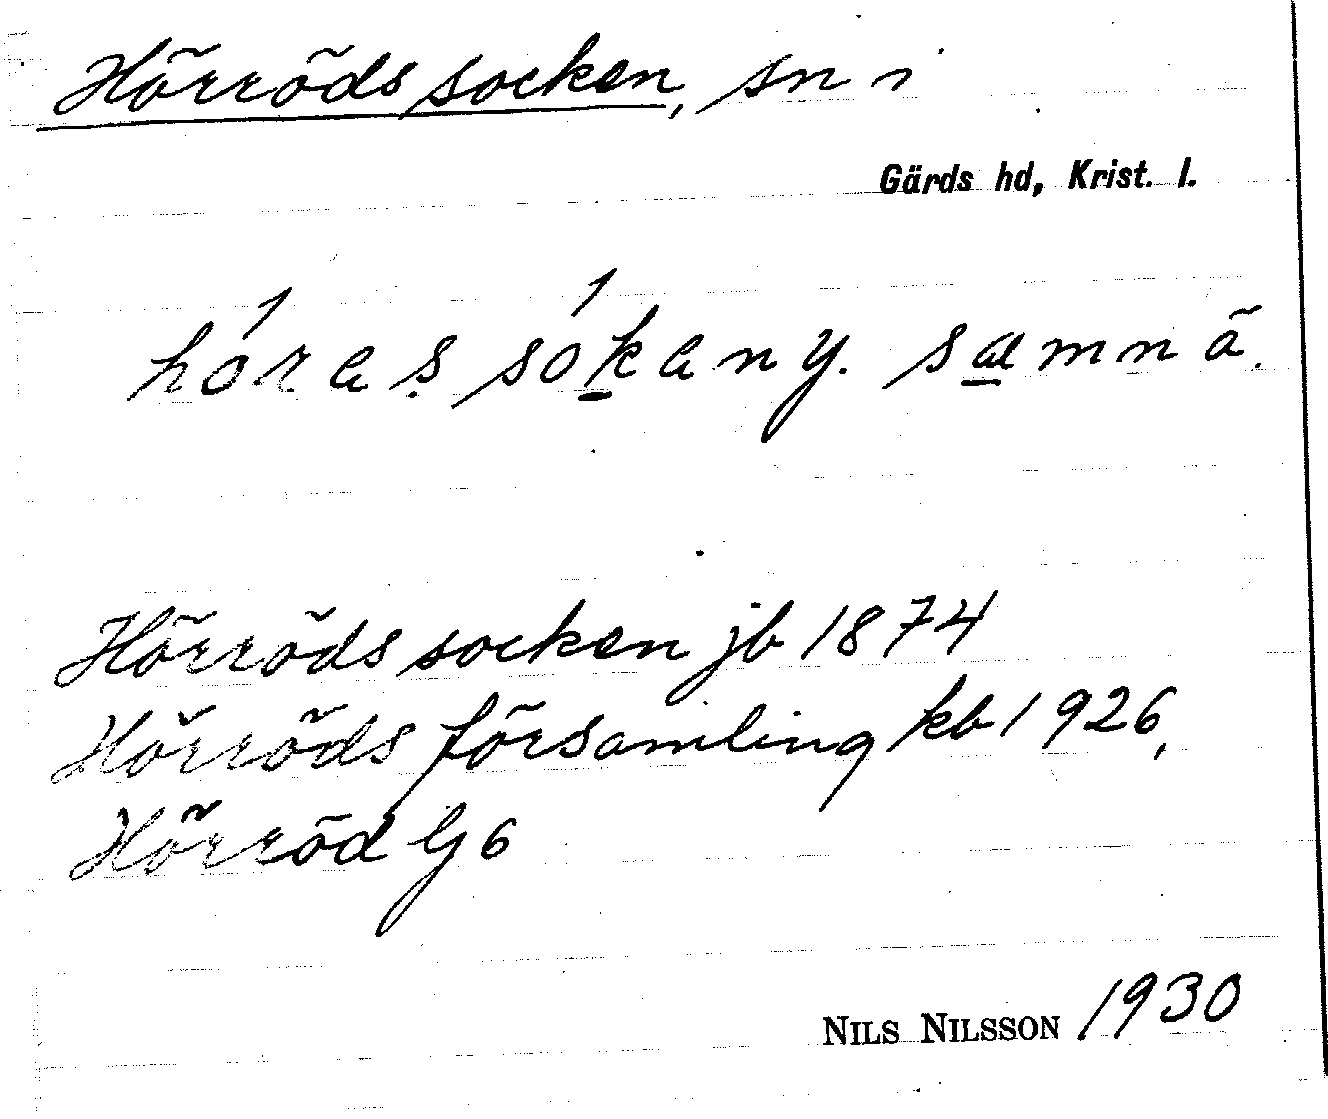 Hörröds socken, sn i
Gärds hd, Krist. l.
hóras sókany. samnã.
Hörröds socken jb 1874
Hörröds församling kb 1926,
Hörröd G 6
NILS NILSSON 1930